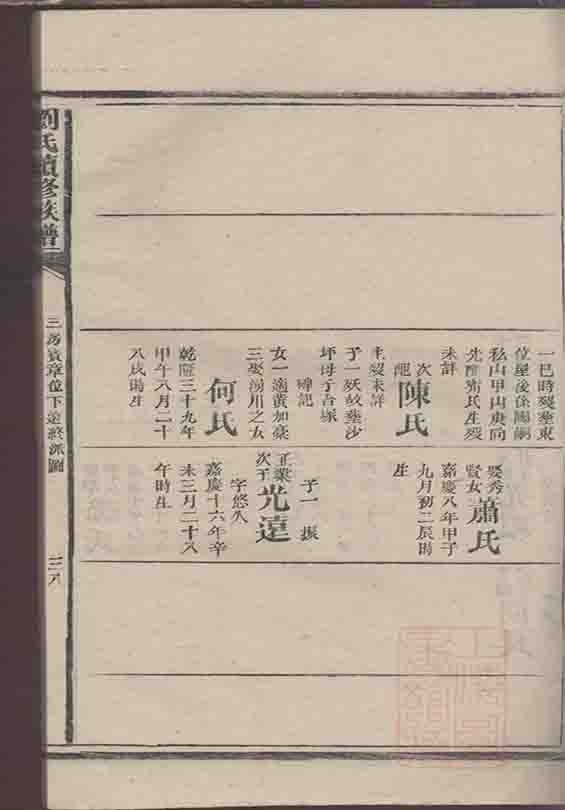 一巳時歿塟東
位屋後係關嗣
私山甲山庚向
先酣甯氏生歿
未詳
次
配
陳氏
生歿未詳
子一殀歿塟沙
坪母子合塚
碑記
女一適黃如豪
三娶湖川之女
何氏
乾隆三十九年
甲午八月二十
八戌時生
娶秀
賢女
蕭氏
嘉慶八年甲子
九月初二辰時
生
子一 振
業
次子
光遠
字悠久
嘉慶十六年辛
未三月二十八
午時生
劉氏續修族譜
三房實章位下遠終派圖
三八